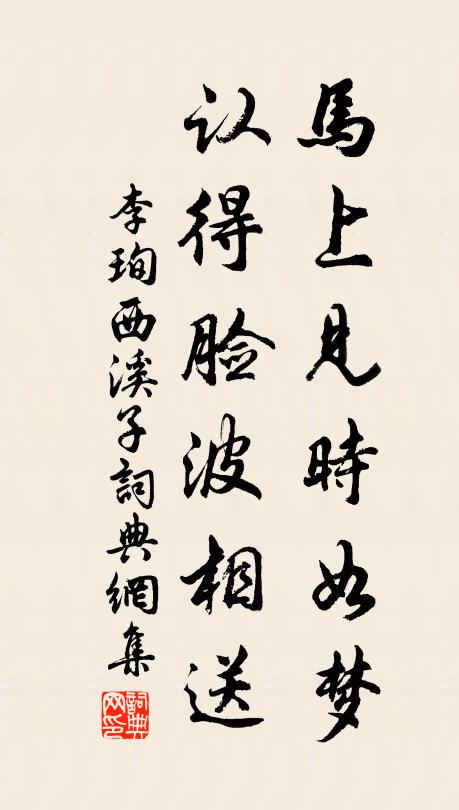 馬上見時如梦
认得脸波相送
李珣西溪子詞典網集
詞典网印